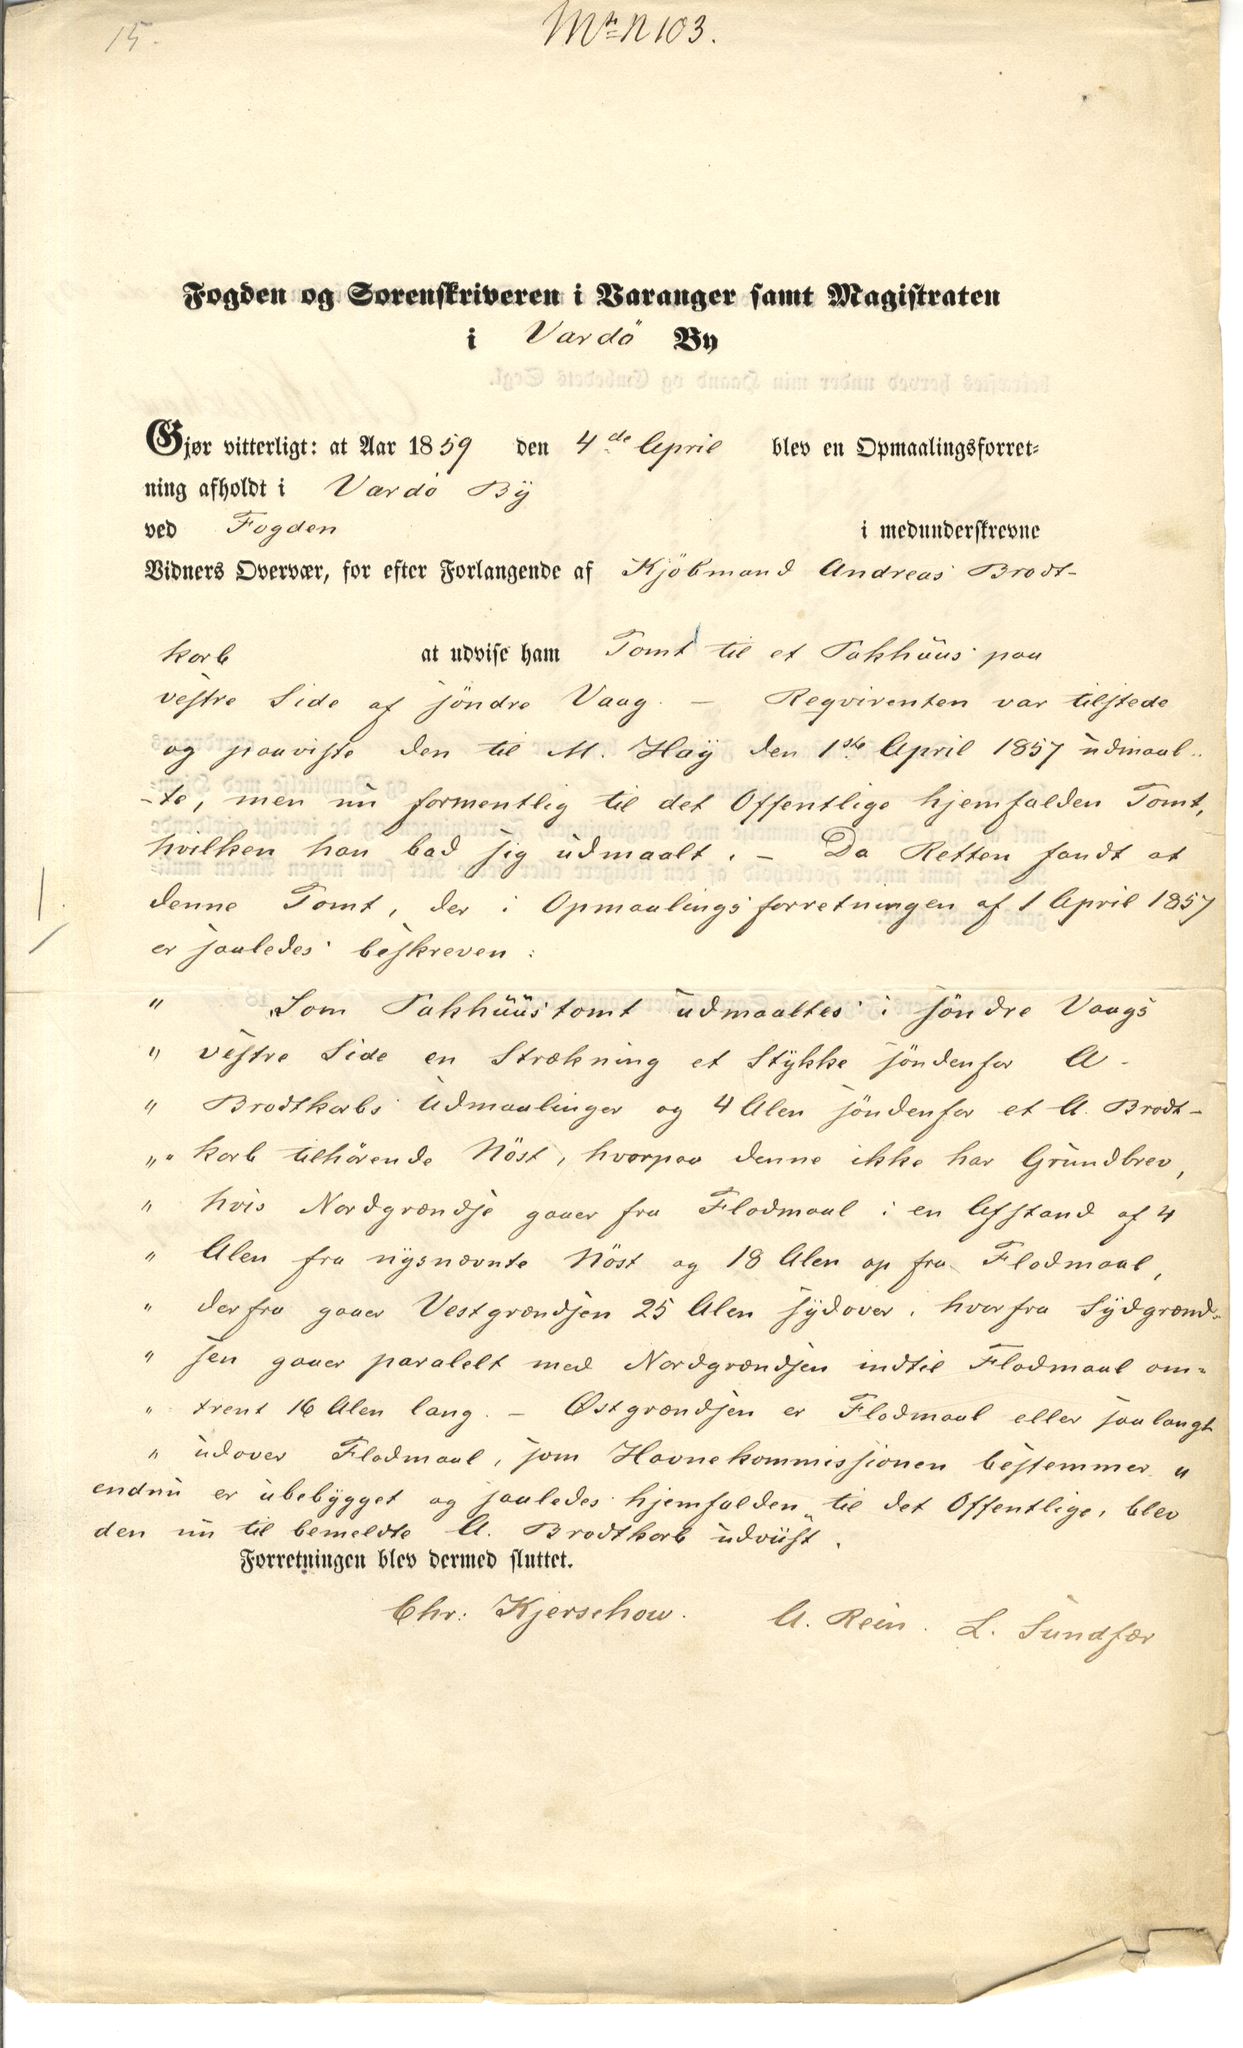 15.
Mtr N 103.
Fogden og Sorenskriveren i Varanger samt Magistraten
i Vardö By
Gjør vitterligt: at Aar 1859 den 4de April blev en Opmaalingsforret-
ning afholdt i Vardö By
ved Fogden i medunderskrevne
Vidners Overvær, for efter Forlangende af Kjöbmand Andreas Brodt-
korb at udvise ham Tomt til et Pakhuus paa
vestre Side af söndre Vaag. – Reqvirenten var tilstede
og paaviste den til M. Hay den 1ste April 1857 udmaal-
-te, men nu formentlig til det Offentlige hjemfalden Tomt,
hvilken han bad sig udmaalt. – Da Retten fandt at
denne Tomt, der i Opmaalingsforretningen af 1 April 1857
er saaledes beskreven:
" Som Pakhuustomt udmaaltes i söndre Vaags
" vestre Side en Strækning et Stykke söndenfor A.
" Brodtkorbs Udmaalinger og 4 Alen söndenfor et A. Brodt-
" korb tilhörende Nöst, hvorpaa denne ikke har Grundbrev,
" hvis Nordgrændse gaaer fra Flodmaal i en Afstand af 4
" Alen fra nysnævnte Nöst og 18 Alen op fra Flodmaal,
" derfra gaaer Vestgrændsen 25 Alen sydover, hvorfra Sydgrænd-
" sen gaaer paralelt med Nordgrændsen indtil Flodmaal om-
" trent 16 Alen lang. – Østgrændsen er Flodmaal eller saalangt
" udover Flodmaal, som Havnekommissionen bestemmer "
endnu er ubebygget og saaledes hjemfalden til det Offentlige, blev
den nu til bemeldte A. Brodtkorb udviist.
Forretningen blev dermed sluttet.
Chr: Kjerschow. A. Rein. L. Sundfær